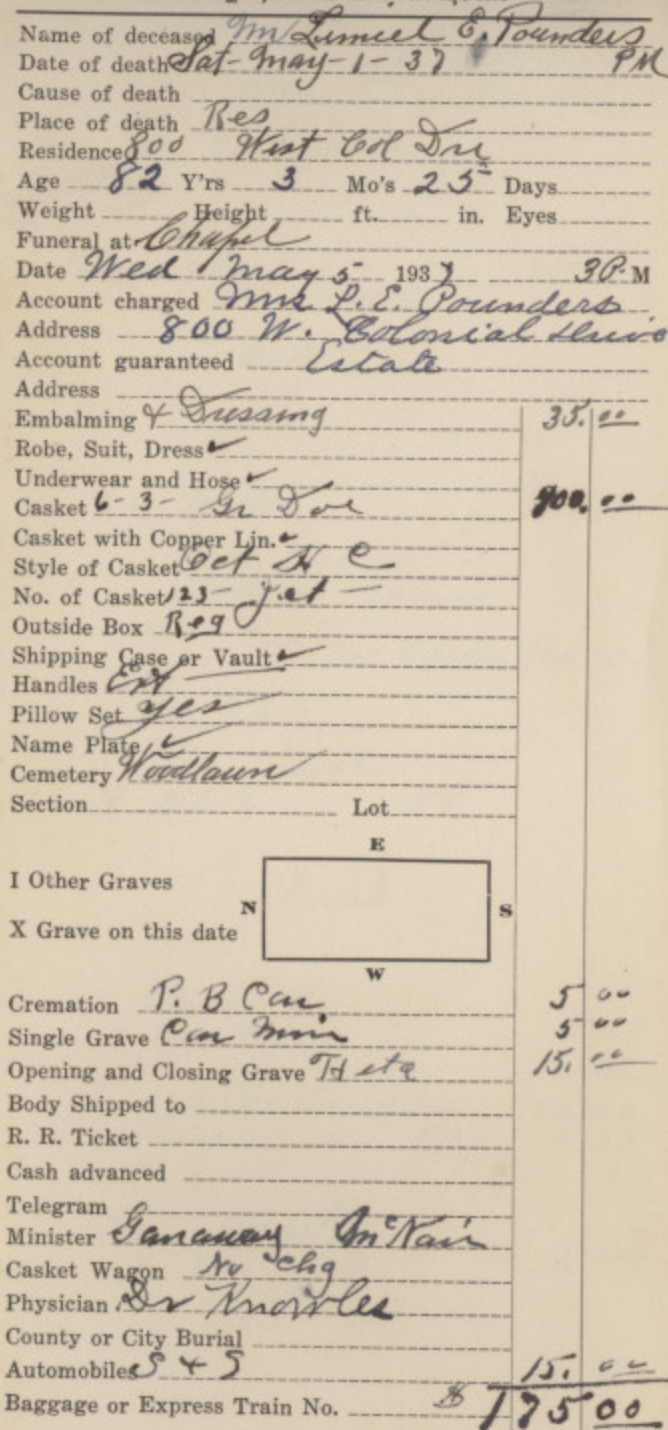 Name of deceased Mr Lemiel E. Pounders
Date of death Sat- May-1-37 PM
Cause of death
Place of death Res
Residence 800 West Col Dri
Age 82 Y'rs 3 Mo's 25 Days
Weight Height ft. in. Eyes
Funeral at Chapel
Date Wed May 5 1937 3 P. M
Account charged Mrs L. E. Pounders
Address 800 W. Colonial Drive
Account guaranteed Estate
Address
Embalming & Dressing 35.00
Robe, Suit, Dress ✓
Underwear and Hose ✓
Casket 6-3- Gr Doe 00
Casket with Copper Lin. ✓
Style of Casket Oct H C
No. of Casket 123-
Outside Box Reg
Shipping Case or Vault ✓
Handles Ext
Pillow Set yes
Name Plate ✓
Cemetery Woodlawn
Section Lot
E
I Other Graves
N S
X Grave on this date
W
Cremation P. B Car 5 00
Single Grave Car Min 5 00
Opening and Closing Grave 15.00
Body Shipped to
R. R. Ticket
Cash advanced
Telegram
Minister Ganaway McNair
Casket Wagon No chg
Physician Dr Knowles
County or City Burial
Automobiles S + S 15.00
Baggage or Express Train No. $ 175 00